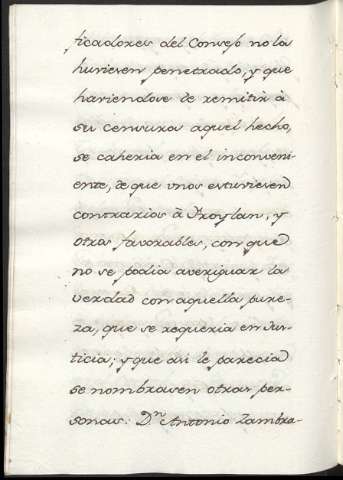 ficadores del Consejo no la
huviesen penetrado, y que
haviendose de remitir à
su censura aquel hecho,
se caheria en el inconveni-
ente, de que unos estuviesen
contrarios à Froylan, y
otros favorables, con que
no se podia averiguar la
verdad con aquella pure-
za, que se requeria en Jus-
ticia; y que asi le parecia
se nombrasen otras per-
sonas: D.n Antonio Zambra-